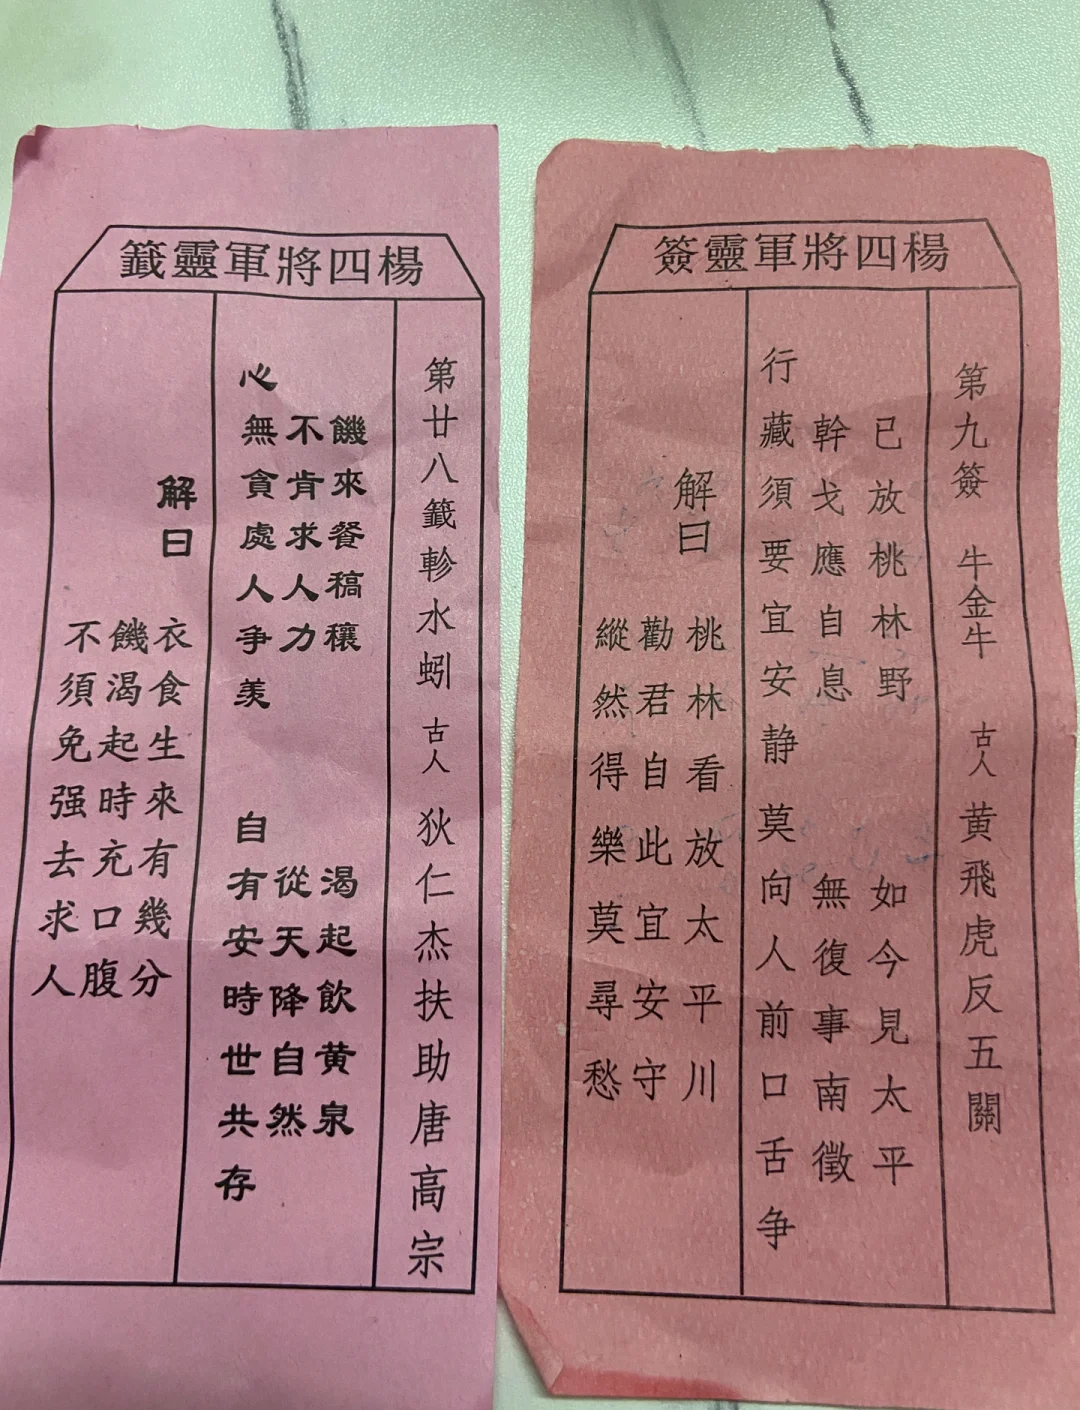 楊四將軍靈簽
第九簽 牛金牛 古人 黄飛虎反五關
已放桃林野 如今見太平
幹戈應自息 無復事南徵
行藏須要宜安静 莫向人前口舌争
解曰
桃林看放太平川
勸君自此宜安守
縱然得樂莫尋愁
楊四將軍靈籤
第廿八籤軫水蚓 古人 狄仁杰扶助唐高宗
饑來餐稿穰 渴起飲黄泉
不肯求人力 從天降自然
心無貪處人争羡 自有安時世共存
解曰
衣食生來有幾分
饑渴起時充口腹
不須免强去求人